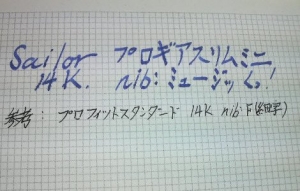 Sailor プロギアスリムミニ
14K. nib:ミュージック!
参考: プロフィットスタンダード 14K nib:F(細字)